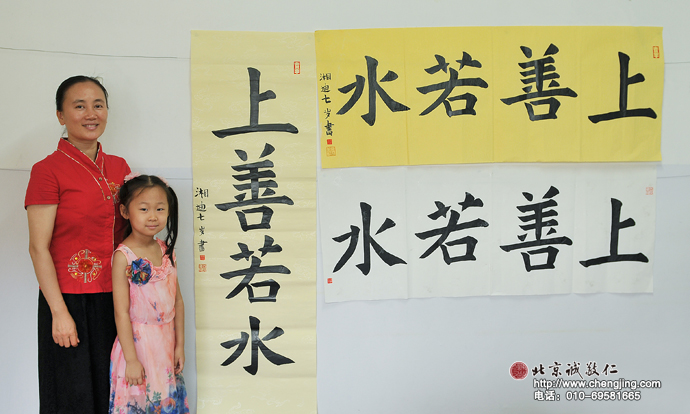 上善若水
湘迪七岁書
上善若水
湘迪七岁書
上善若水
北京诚敬仁
http://www.chengjing.com
电话：010-69581665